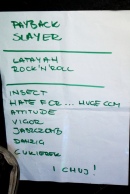 PAYBACK
SLAYER
LATAYAH
ROCK'N'ROLL
INSECT
HATE FOR... HUGE COM
ATTITUDE
VIGOR
JASZCZOMB
DANZIG
CUKIEREK
I CHUJ!